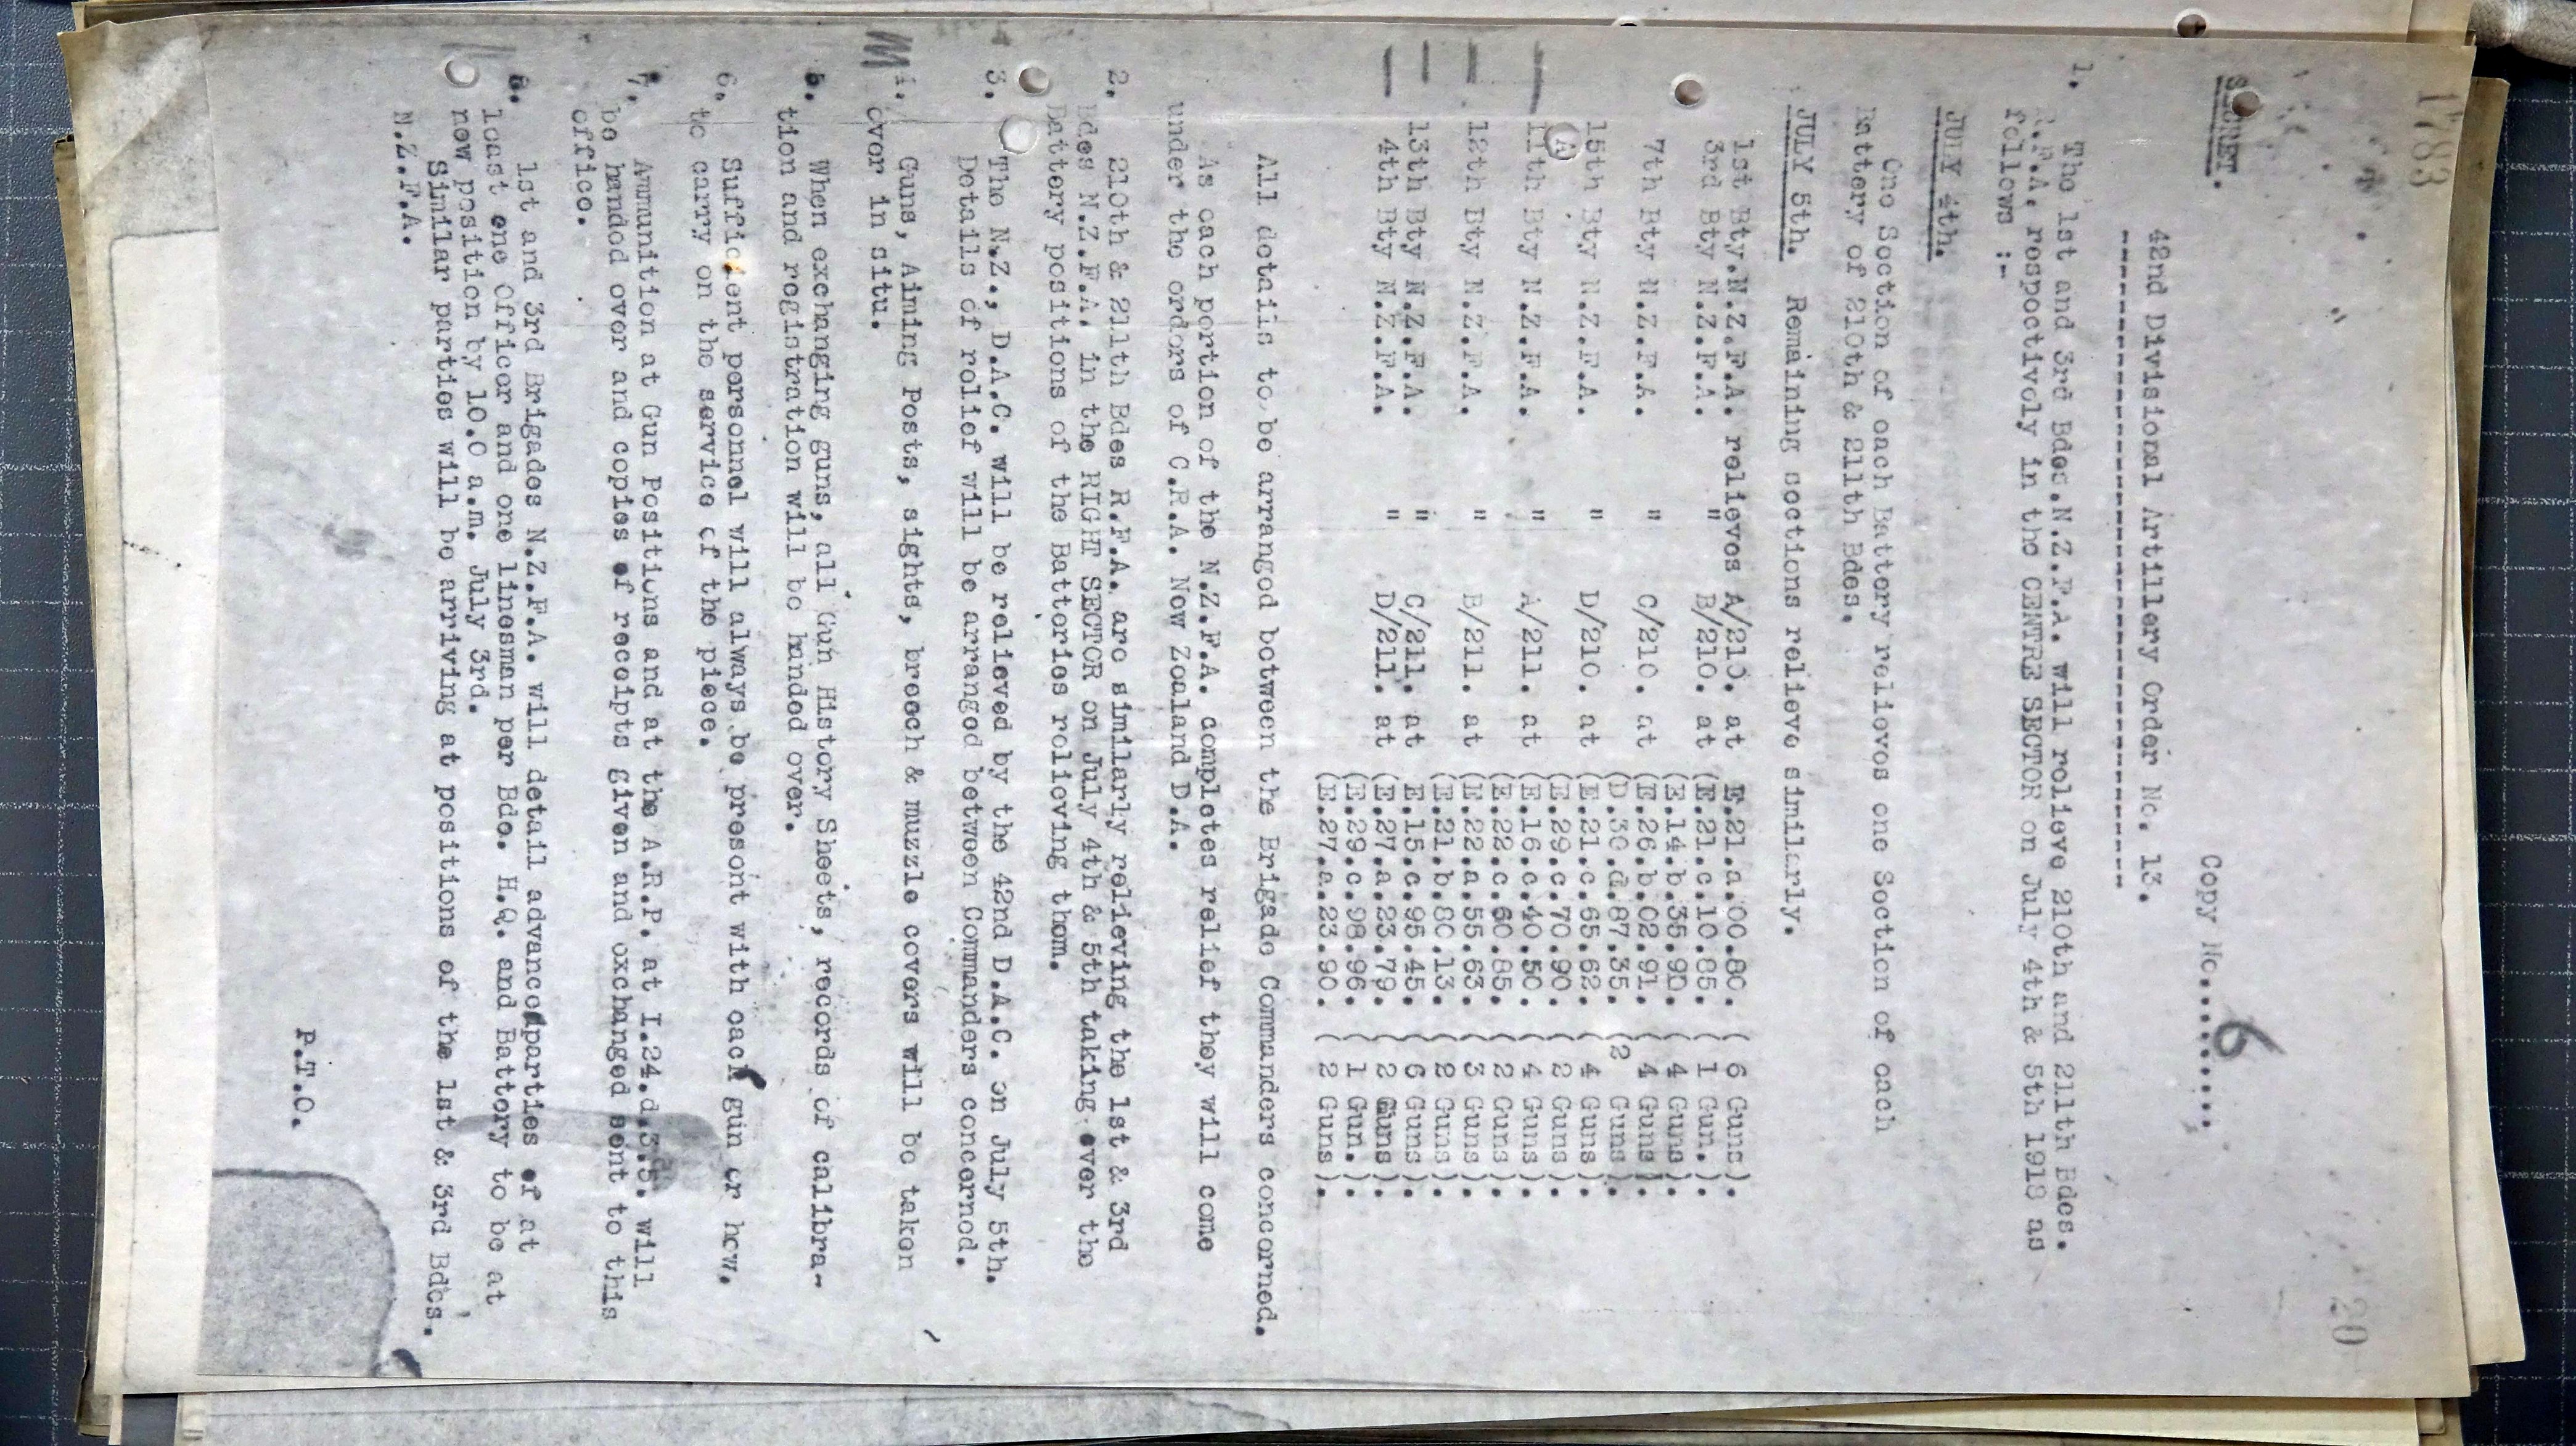 1783
20
SECRET.
Copy No......... 6
42nd Divisional Artillery Order No. 13.
1. The 1st and 3rd Bdes.N.Z.F.A. will relieve 210th and 211th Bdes.
R.F.A. respectively in the CENTRE SECTOR on July 4th & 5th 1918 as
follows :-
JULY 4th.
One Section of each Battery relieves one Section of each
Battery of 210th & 211th Bdes.
JULY 5th. Remaining sections relieve similarly.
1st Bty.N.Z.F.A. relieves A/210. at E.21.a.00.80. ( 6 Guns).
3rd Bty N.Z.F.A. " B/210. at (E.21.c.10.85. ( 1 Gun.).
(E.14.b.35.90. ( 4 Guns).
7th Bty N.Z.F.A. " C/210. at (E.26.b.02.91. ( 4 Guns).
(D.30.d.87.35. (2 Guns).
15th Bty N.Z.F.A. " D/210. at (E.21.c.65.62. ( 4 Guns).
(A) (E.29.c.70.90. ( 2 Guns).
11th Bty N.Z.F.A. " A/211. at (E.16.c.40.50. ( 4 Guns).
(E.22.c.60.85. ( 2 Guns).
12th Bty N.Z.F.A. " B/211. at (E.22.a.55.63. ( 3 Guns).
(E.21.b.80.13. ( 2 Guns).
13th Bty N.Z.F.A. " C/211. at E.15.c.95.45. ( 6 Guns).
4th Bty N.Z.F.A. " D/211. at (E.27.a.23.79. ( 2 Guns).
(E.29.c.98.96. ( 1 Gun.).
(E.27.a.23.90. ( 2 Guns).
All details to be arranged between the Brigade Commanders concerned.
As each portion of the N.Z.F.A. completes relief they will come
under the orders of C.R.A. New Zealand D.A.
2. 210th & 211th Bdes R.F.A. are similarly relieving the 1st & 3rd
Bdes N.Z.F.A. in the RIGHT SECTOR on July 4th & 5th taking over the
Battery positions of the Batteries relieving them.
3. The N.Z., D.A.C. will be relieved by the 42nd D.A.C. on July 5th.
Details of relief will be arranged between Commanders concerned.
4. Guns, Aiming Posts, sights, breech & muzzle covers will be taken
over in situ.
5. When exchanging guns, all Gun History Sheets, records of calibra-
tion and registration will be handed over.
6. Sufficient personnel will always be present with each gun or how.
to carry on the service of the piece.
7. Ammunition at Gun Positions and at the A.R.P. at I.24.d.3.5. will
be handed over and copies of receipts given and exchanged sent to this
office.
8. 1st and 3rd Brigades N.Z.F.A. will detail advance parties of at
least one Officer and one linesman per Bde. H.Q. and Battery to be at
new position by 10.0 a.m. July 3rd.
Similar parties will be arriving at positions of the 1st & 3rd Bdes.
N.Z.F.A.
P.T.O.